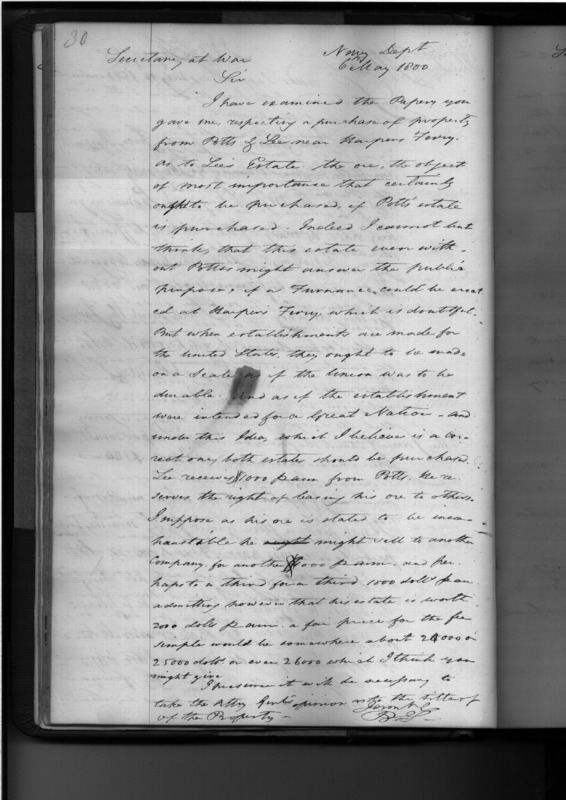 30
Secretary at War
Navy Dept
6 May 1800
Sir
I have examined the Papers you
gave me, respecting a purchase of property
from Potts & Lee near Harpers Ferry.
As to Lee's Estate the ore, the object
of most importance that certainly
ought to be purchased, if Potts' estate
is purchased. Indeed I cannot but
think, that this estate even with-
out Potts's might answer the public
purposes if a Furnance could be erect
ed at Harpers Ferry, which is doubtful.
But when establishments are made for
the United States, they ought to be made
on a Scale as if the Union was to be
durable. And as if the establishment
were intended for a Great Nation - and
under this Idea, which I believe is a cor-
rect one, both estates should be purchased.
Lee receives $1000 P ann from Potts. He re
serves the right of leasing his ore to others.
I suppose as his ore is stated to be inex-
haustable he might might sell to another
Company for another $1000 P ann, and per
haps to a third for a third 1000 doll P an
admitting however that his estate is worth
2000 dolls P ann. a fair price for the fee
simple would be somewhere about 24000 or
25000 dolls or even 26000 which I think you
might give
I presume it will be necessary to
take the Atty Genl's opinion as to the titles of
of the Property -
B S -